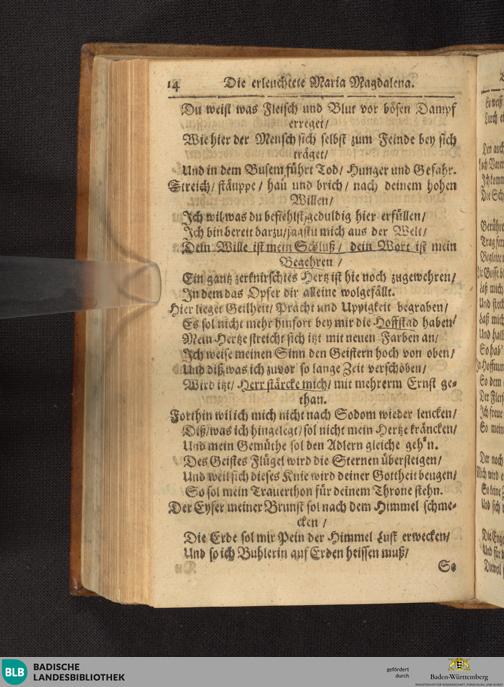 14 Die erleuchtete Maria Magdalena.
Du weist was Fleisch und Blut vor bösen Dampf
erreget/
Wie hier der Mensch sich selbst zum Feinde bey sich
träget/
Und in dem Busem führt Tod/ Hunger und Gefahr.
Streich/ stäuppe/ hau und brich/ nach deinem hohen
Willen/
Ich wil was du befiehlst geduldig hier erfüllen/
Ich bin bereit darzu/ jagstu mich aus der Welt/
Dein Wille ist mein Schluß/ dein Wort ist mein
Begehren/
Ein gantz zerknirschtes Hertz ist hie noch zugewehren/
In dem das Opfer dir alleine wolgefällt.
Hier lieget Geilheit/ Pracht und Uppigkeit begraben/
Es sol nicht mehr hinfort bey mir die Hoffstad haben/
Mein Hertze streicht sich itzt mit neuen Farben an/
Ich weise meinen Sinn den Geistern hoch von oben/
Und diß was ich zuvor so lange Zeit verschoben/
Wird itzt/ Herr stärcke mich/ mit mehrerm Ernst ge-
than.
Forthin wil ich mich nicht nach Sodom wieder lencken/
Diß/ was ich hingelegt/ sol nicht mein Hertze kräncken/
Und mein Gemüthe sol den Adlern gleiche geh'n.
Des Geistes Flügel wird die Sternen übersteigen/
Und weil sich dieses Knie wird deiner Gottheit beugen/
So sol mein Trauerthon für deinem Throne stehn.
Der Eyfer meiner Brunst sol nach dem Himmel schme-
cken/
Die Erde sol mir Pein der Himmel Lust erwecken/
Und so ich Buhlerin auf Erden heissen muß/
So
BLB BADISCHE
LANDESBIBLIOTHEK
gefördert
durch
Baden-Württemberg